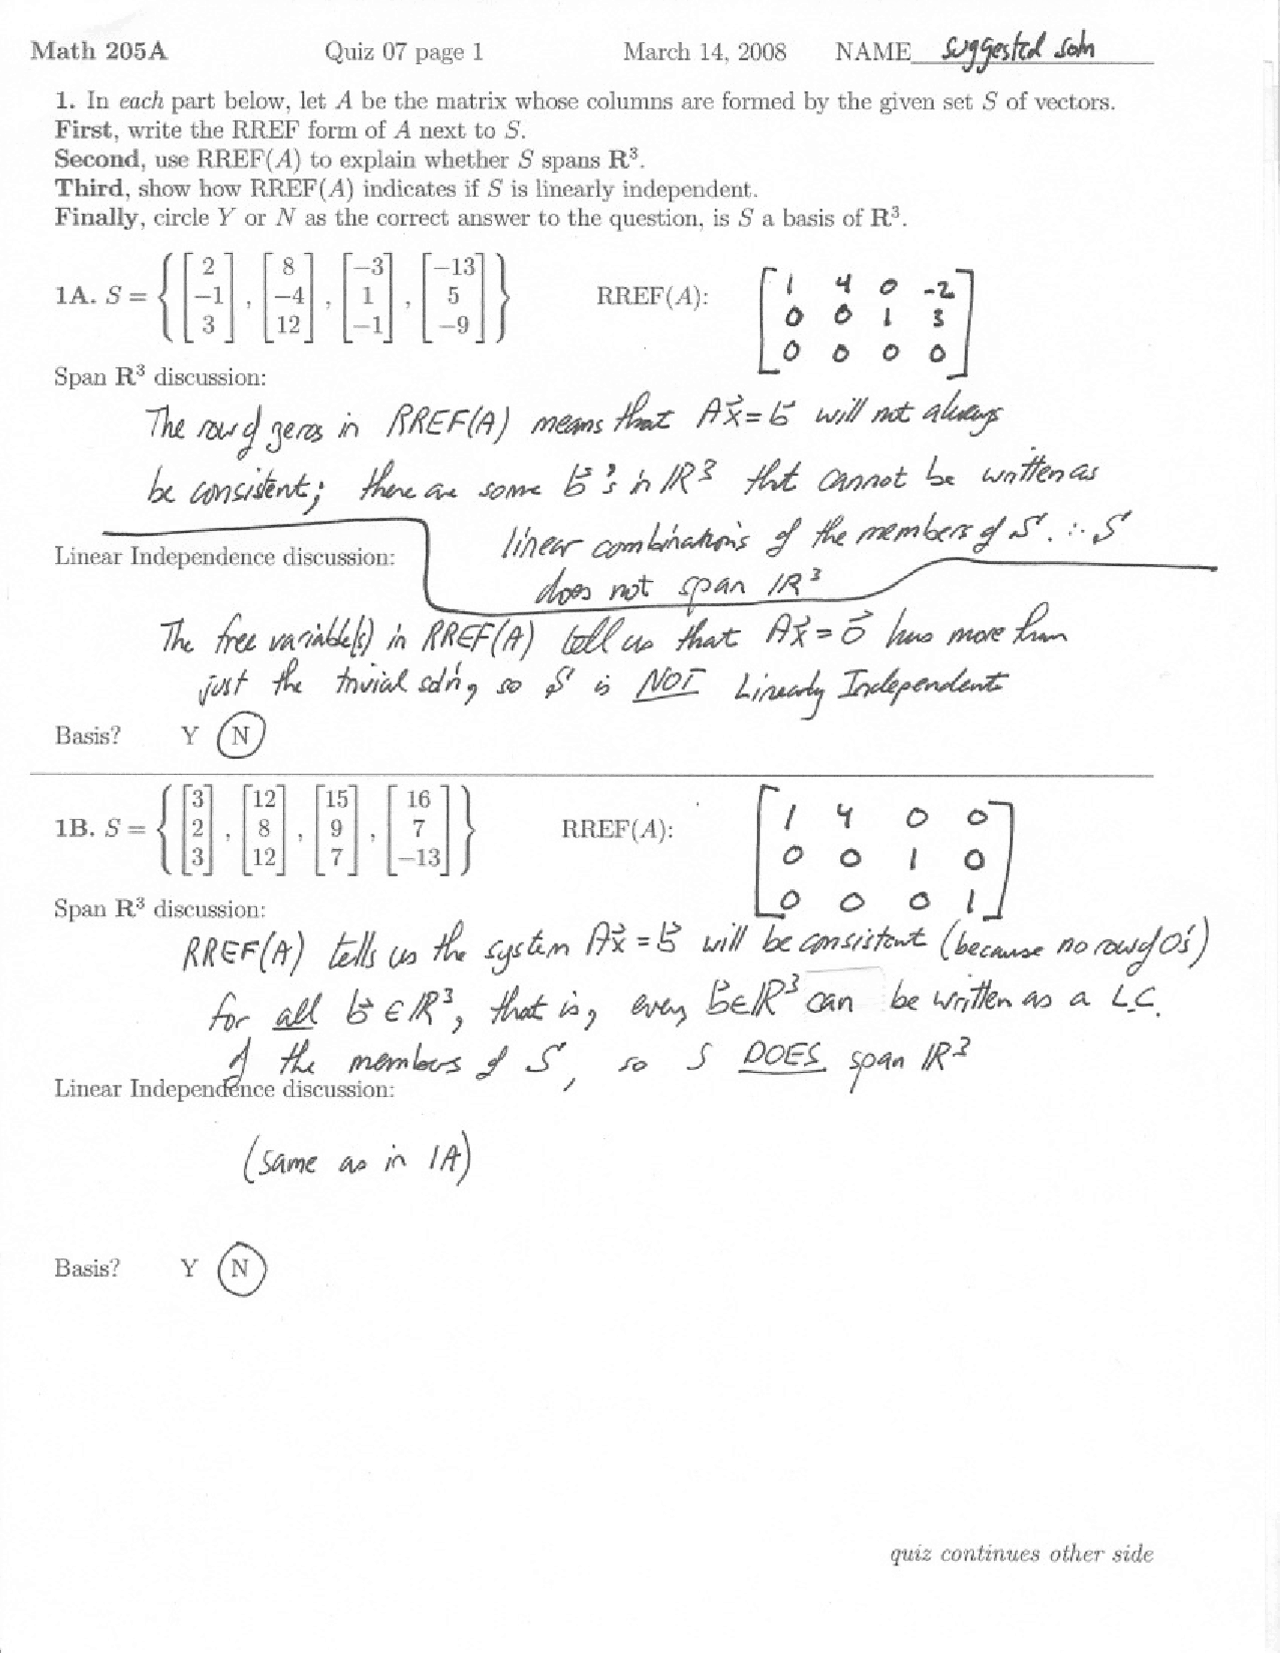 Math 205A Quiz 07 page 1 March 14, 2008 NAME suggested soln
1. In each part below, let A be the matrix whose columns are formed by the given set S of vectors.
First, write the RREF form of A next to S.
Second, use RREF(A) to explain whether S spans R³.
Third, show how RREF(A) indicates if S is linearly independent.
Finally, circle Y or N as the correct answer to the question, is S a basis of R³.
1A. S = { [2 −1 3], [8 −4 12], [−3 1 −1], [−13 5 −9] } RREF(A): [1 4 0 -2
0 0 1 3
0 0 0 0]
Span R³ discussion:
The row of zeros in RREF(A) means that Ax⃗ = b⃗ will not always
be consistent; there are some b⃗'s in ℝ³ that cannot be written as
linear combinations of the members of S. ∴ S
does not span ℝ³
Linear Independence discussion:
The free variable(s) in RREF(A) tell us that Ax⃗ = 0⃗ has more than
just the trivial soln, so S is NOT Linearly Independent
Basis? Y N
1B. S = { [3 2 3], [12 8 12], [15 9 7], [16 7 −13] } RREF(A): [1 4 0 0
0 0 1 0
0 0 0 1]
Span R³ discussion:
RREF(A) tells us the system Ax⃗ = b⃗ will be consistent (because no row of 0's)
for all b⃗ ∈ ℝ³, that is, every b⃗ ∈ ℝ³ can be written as a L.C.
of the members of S, so S DOES span ℝ³
Linear Independence discussion:
(same as in 1A)
Basis? Y N
quiz continues other side